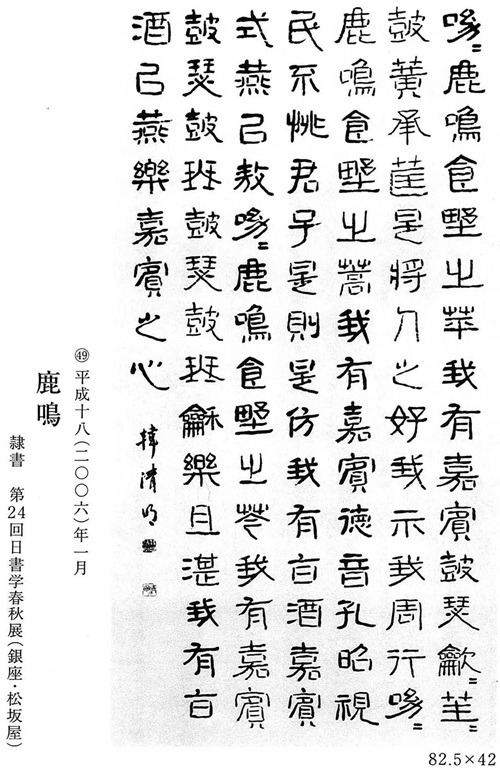 呦〻鹿鳴食埜之苹我有嘉賓鼓瑟歙笙〻
鼓黄承筐是将人之好我示我周行呦〻
鹿鳴食埜之蒿我有嘉賓徳音孔昭視
民不恌君子是則是仿我有旨酒嘉賓
式燕㠯敖呦〻鹿鳴食埜之芩我有嘉賓
鼓瑟鼓琴鼓瑟鼓琴龢樂且湛我有旨
酒㠯燕樂嘉賓之心
㊾平成十八(二〇〇六)年一月
鹿鳴
隷書 第24回日書学春秋展(銀座・松坂屋)
82.5×42